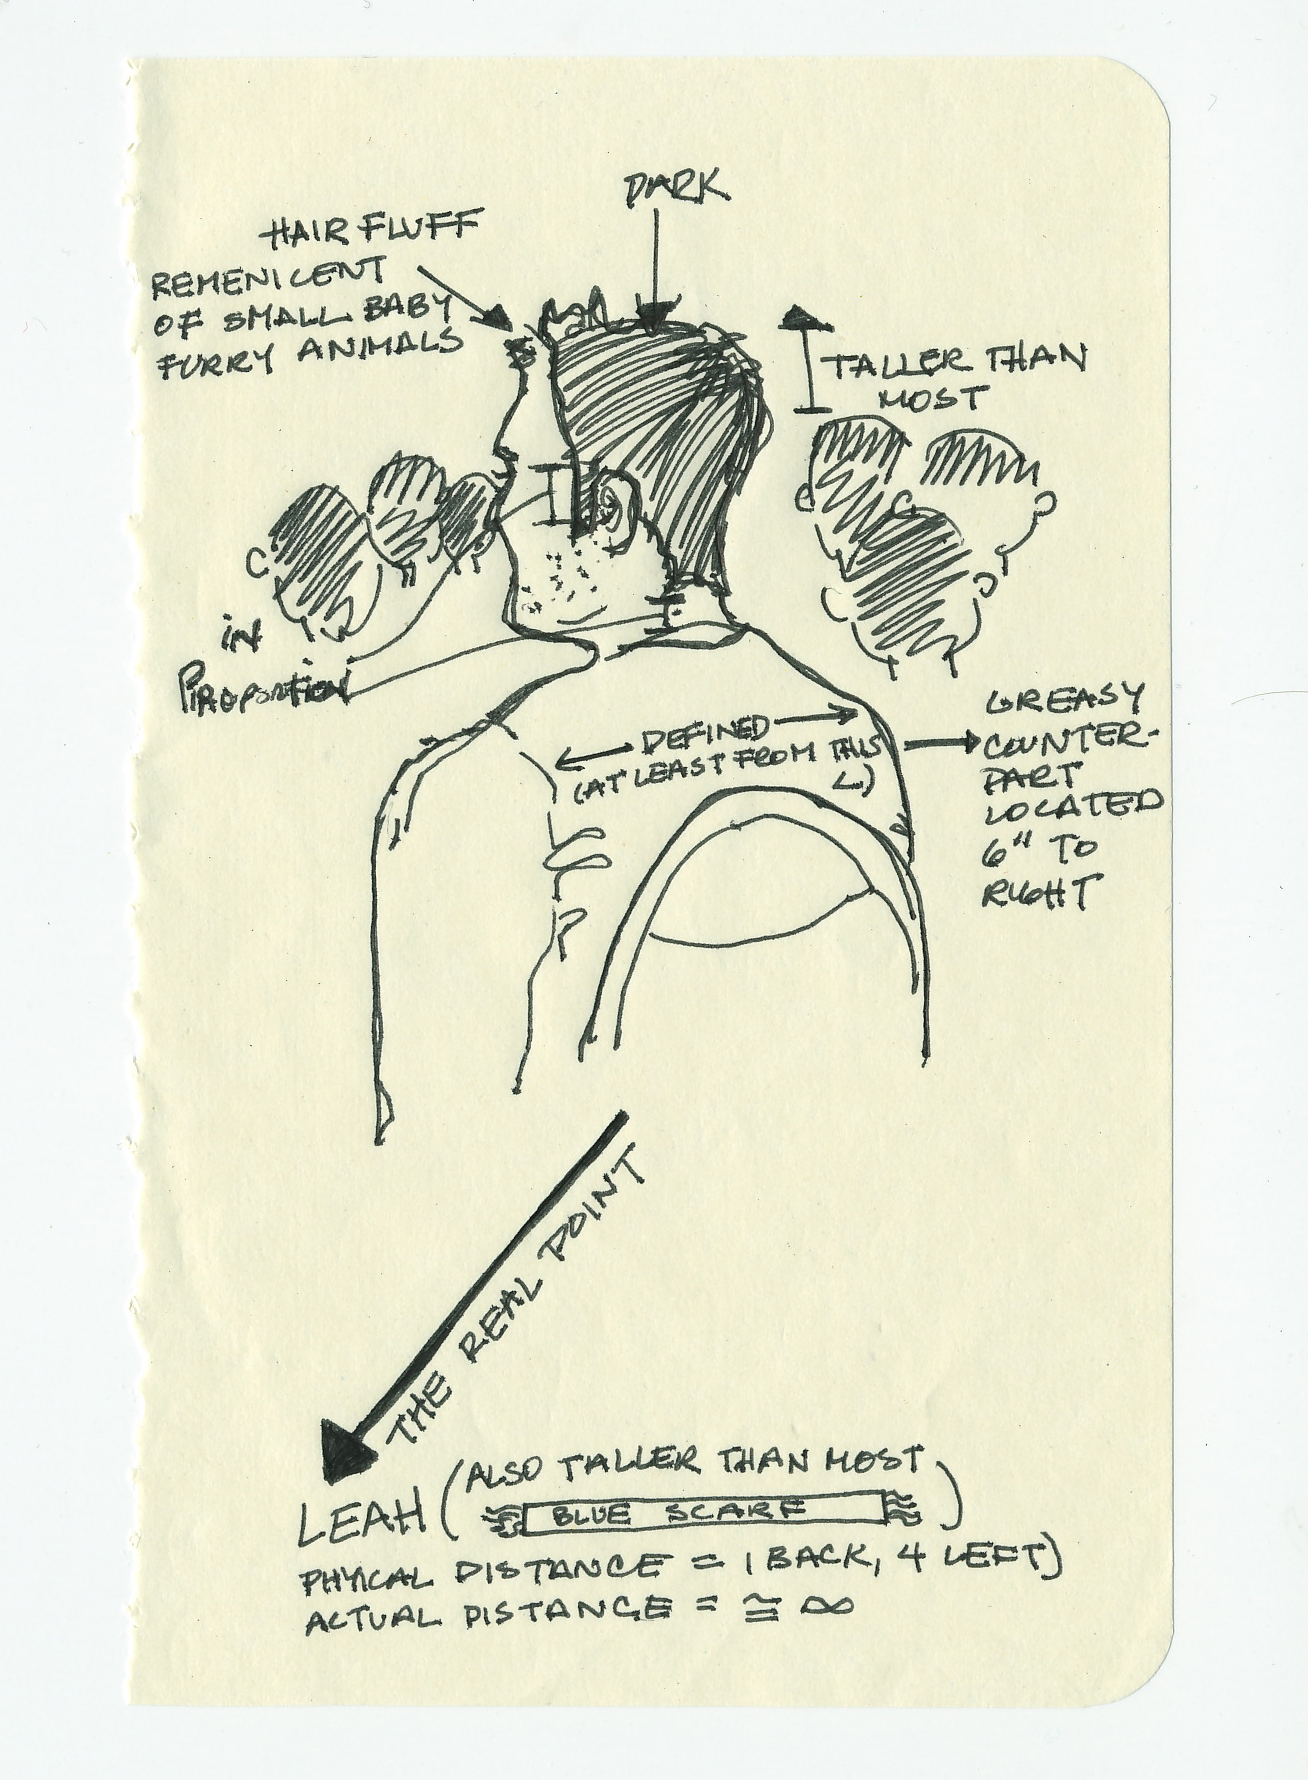 DARK
HAIR FLUFF
REMENICENT
OF SMALL BABY
FURRY ANIMALS
TALLER THAN
MOST
in
Proportion
DEFINED
(AT LEAST FROM THIS
∠)
GREASY
COUNTER-
PART
LOCATED
6" TO
RIGHT
THE REAL POINT
(ALSO TALLER THAN MOST
LEAH
BLUE SCARF)
PHYICAL DISTANCE = 1 BACK, 4 LEFT)
ACTUAL DISTANCE = ≅ ∞